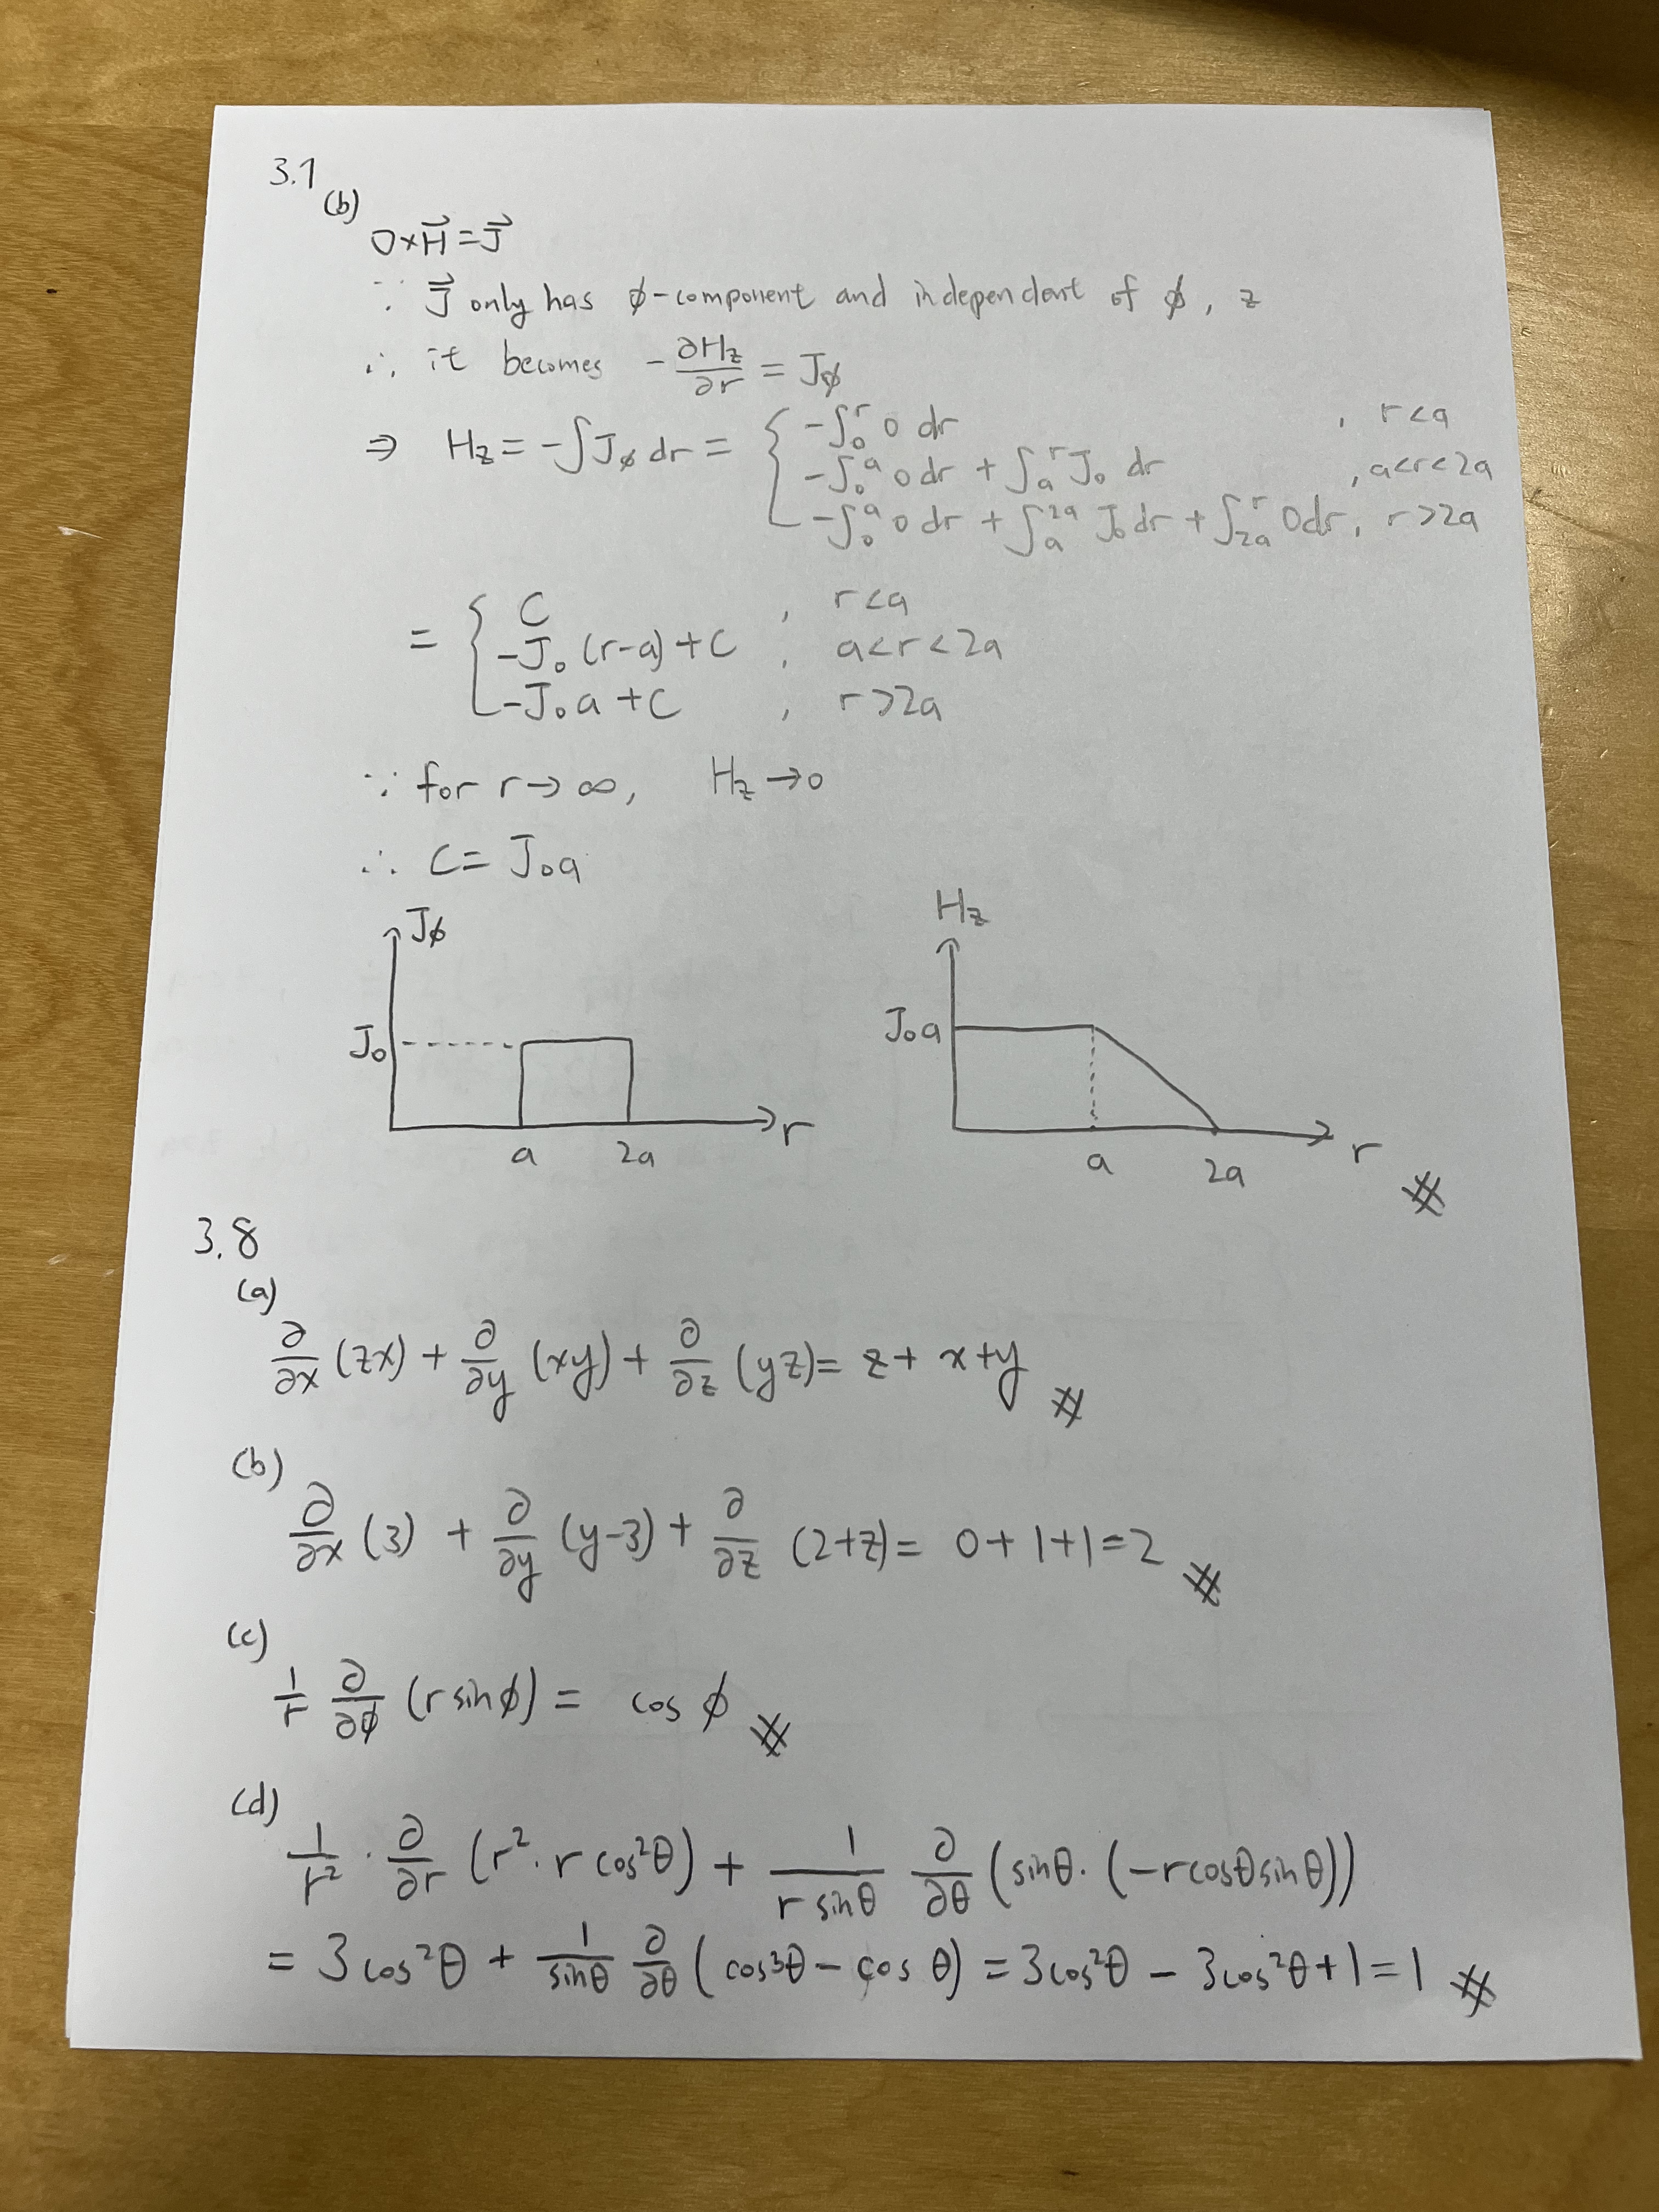 3.7
(b)
∇×H⃗=J⃗
∵ J⃗ only has ϕ-component and independent of ϕ, z
∴ it becomes -∂Hz/∂r = Jϕ
⇒ Hz = -∫Jϕ dr = { -∫₀ʳ 0 dr , r<a
-∫₀ᵃ 0 dr + ∫ₐʳ J₀ dr , a<r<2a
-∫₀ᵃ 0 dr + ∫ₐ²ᵃ J₀ dr + ∫₂ₐʳ 0dr, r>2a
= { C , r<a
-J₀ (r-a)+C , a<r<2a
-J₀a+C , r>2a
∵ for r→∞, Hz→0
∴ C= J₀a
Jϕ
Hz
J₀
J₀a
a 2a r
a 2a r
3.8
(a)
∂/∂x (zx) + ∂/∂y (xy) + ∂/∂z (yz) = z + x+y
(b)
∂/∂x (3) + ∂/∂y (y-3) + ∂/∂z (2+z) = 0+1+1=2
(c)
1/r ∂/∂ϕ (r sinϕ) = cos ϕ
(d)
1/r² · ∂/∂r (r²·r cos²θ) + 1/(r sinθ) ∂/∂θ (sinθ·(-rcosθsinθ))
= 3cos²θ + 1/sinθ ∂/∂θ (cos³θ - cos θ) = 3cos²θ - 3cos²θ+1=1